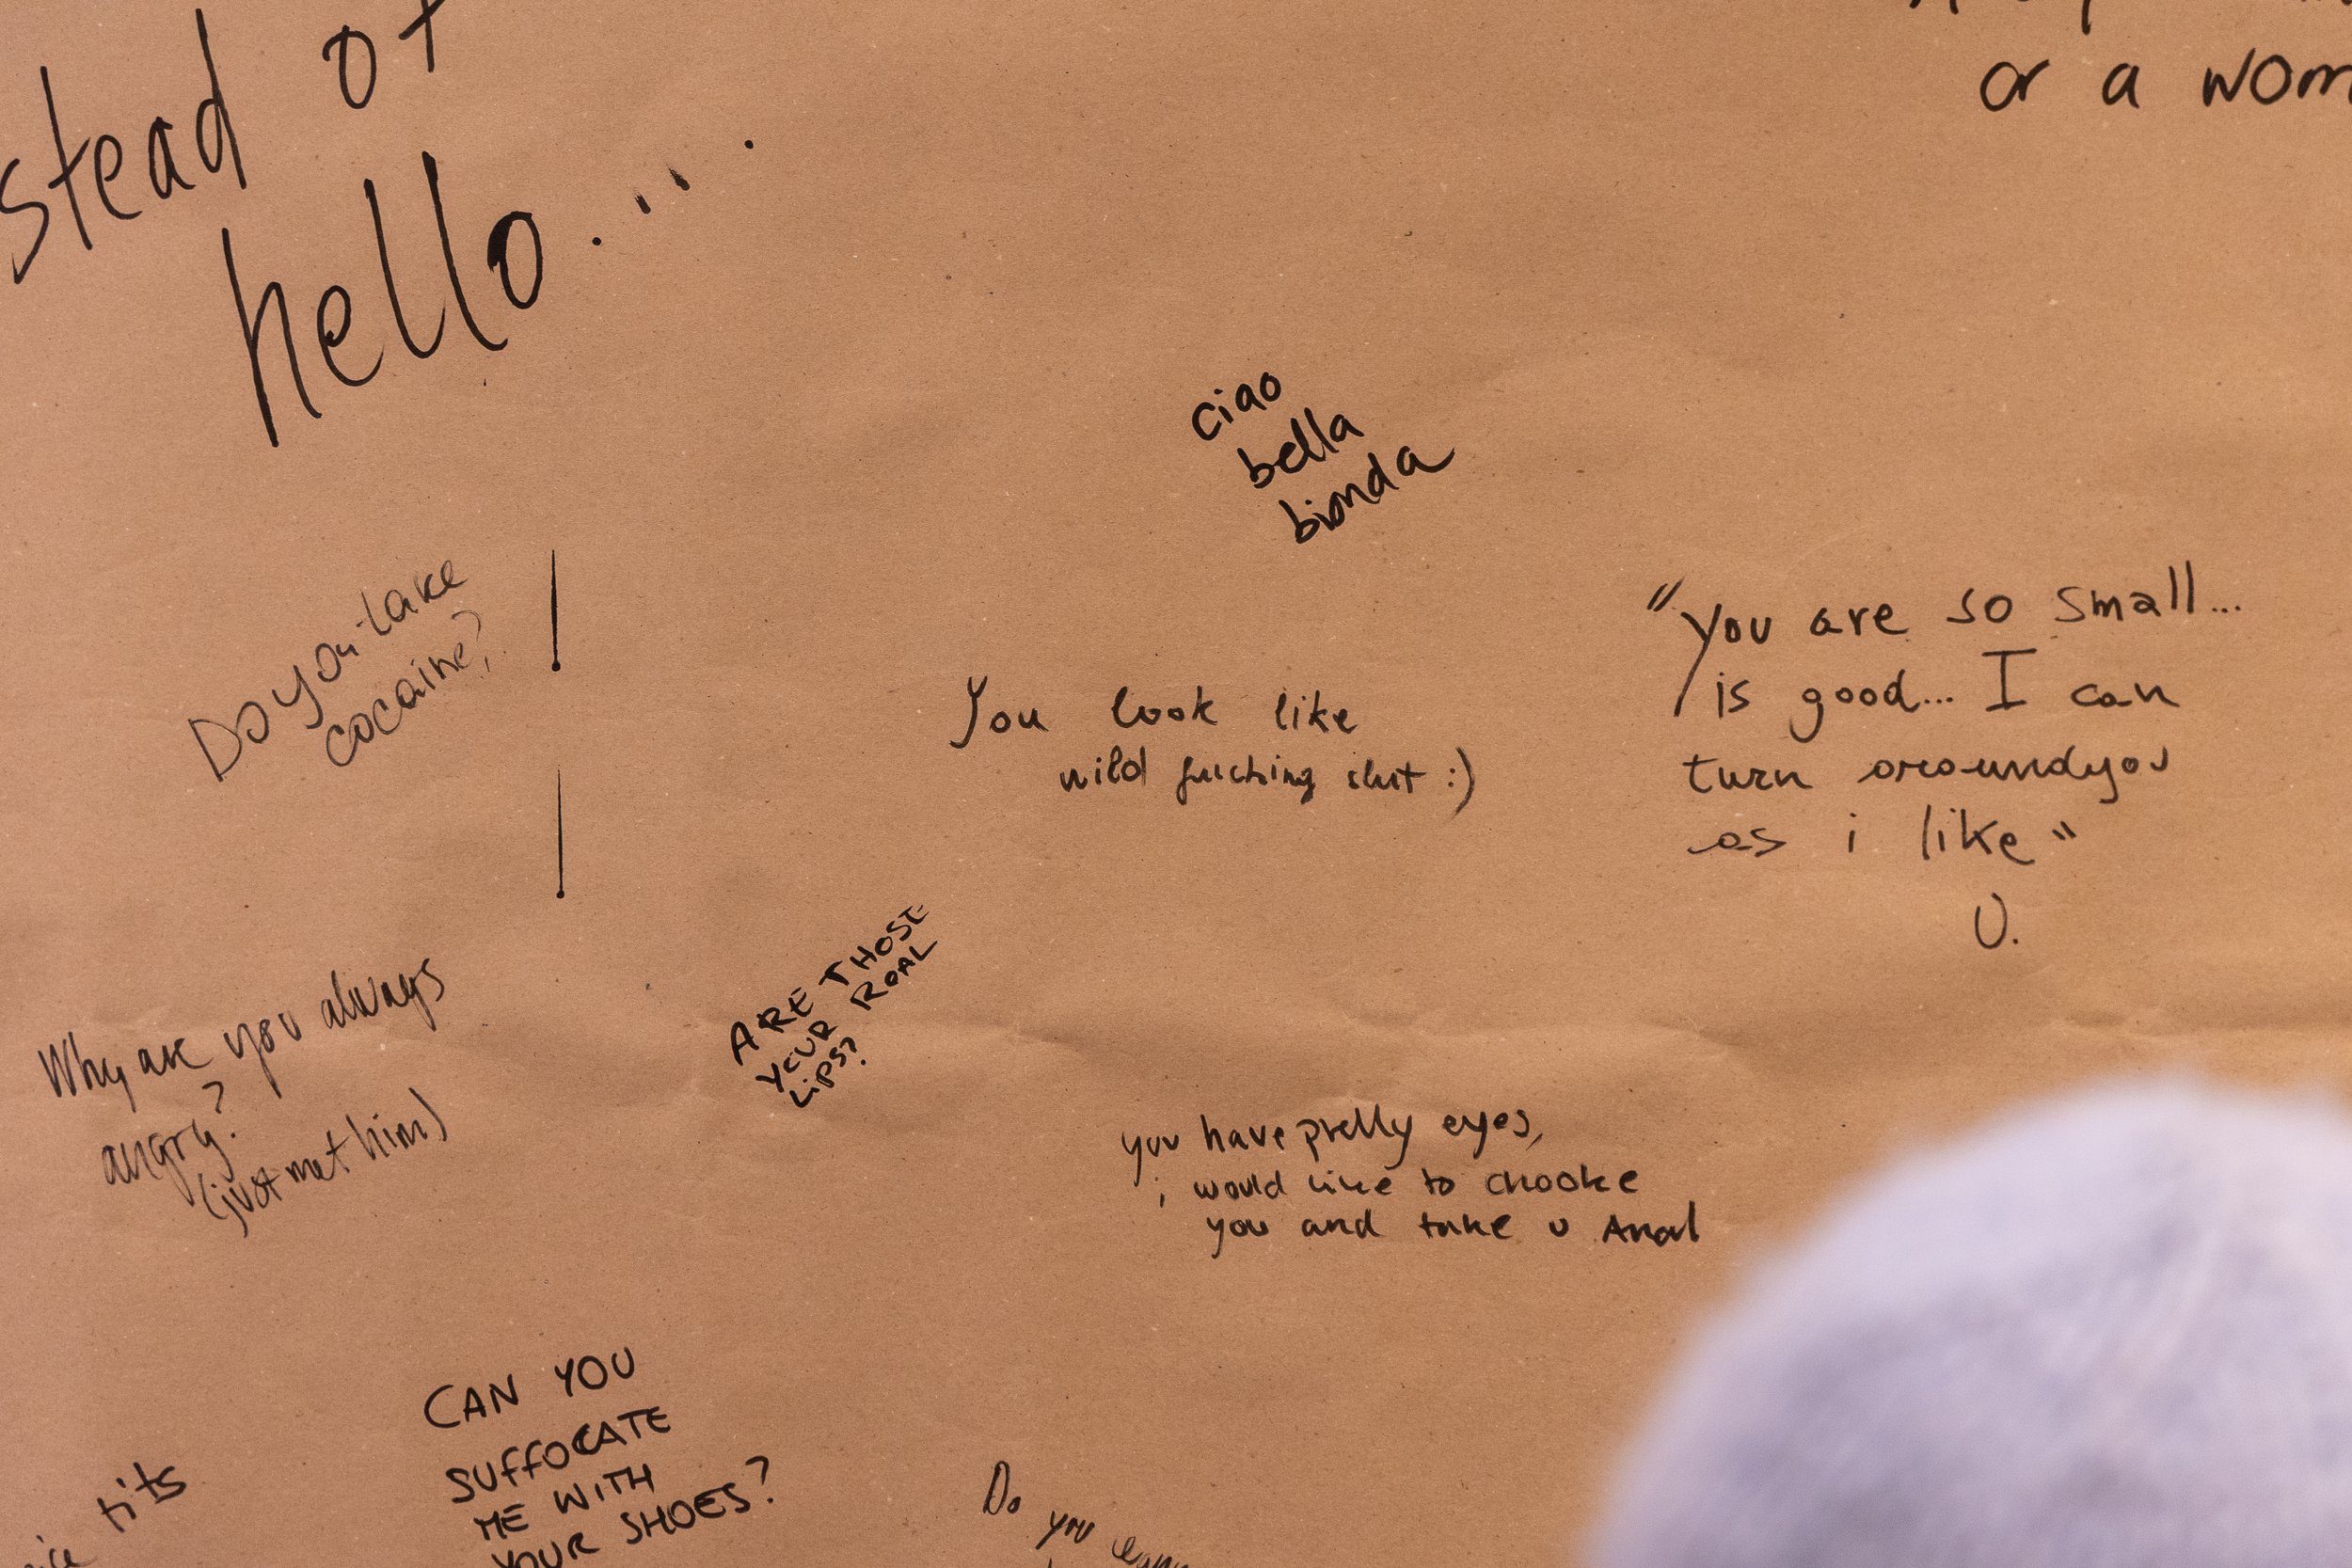 stead of
hello.....
or a wom
ciao
bella
bionda
Do you take
cocaine?
"You are so small...
is good... I can
turn aroundyou
as i like"
U.
You look like
wild fucking slut :)
ARE THOSE
YOUR ROAL
LIPS?
Why are you always
angry?
(just met him)
you have pretty eyes,
i would like to chooke
you and take u Anal
CAN YOU
SUFFOCATE
ME WITH
YOUR SHOES?
tits
Do you